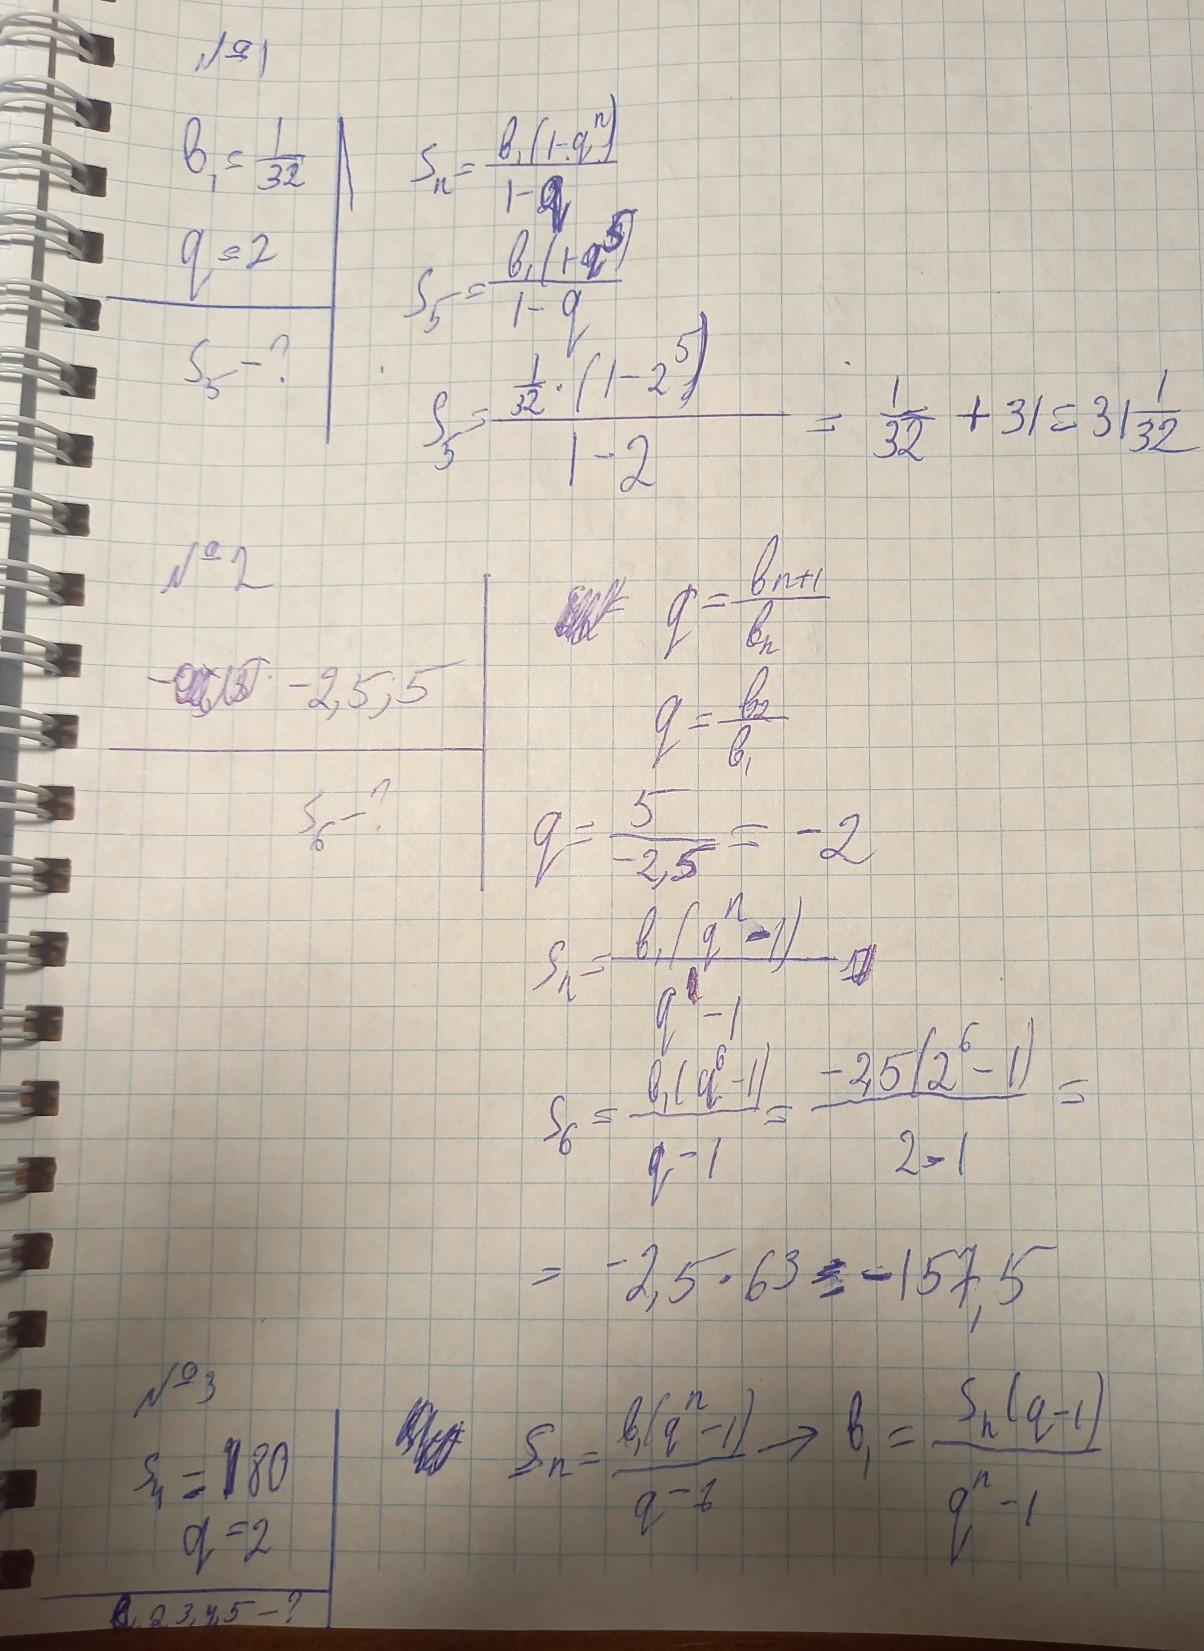 №1
b₁ = 1/32
q = 2
S₅ - ?
Sₙ = b₁(1-qⁿ)/1-q
S₅ = b₁(1-q⁵)/1-q
S₅ = 1/32 · (1-2⁵)/1-2 = 1/32 + 31 = 31 1/32
№2
-2,5; 5
S₆ - ?
q = bₙ₊₁/bₙ
q = b₂/b₁
q = 5/-2,5 = -2
Sₙ = b₁(qⁿ-1)/q-1
S₆ = b₁(q⁶-1)/q-1 = -2,5(2⁶-1)/2-1 =
= -2,5·63 = -157,5
№3
S₄ = 180
q = 2
b₁,2,3,4,5 - ?
Sₙ = b₁(qⁿ-1)/q-1 → b₁ = Sₙ(q-1)/qⁿ-1